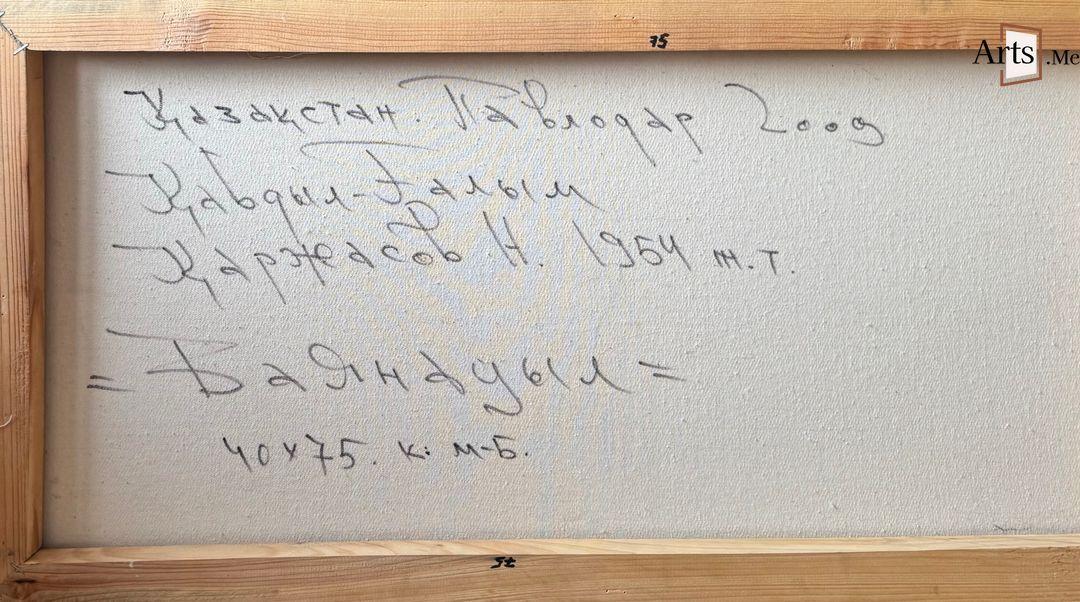 75
Arts .Me
Қазақстан. Павлодар 2009
Қабдыл-Ғалым
Қаржасов Н. 1954 ж.т.
= Баянауыл =
40х75. к. м-б.
75